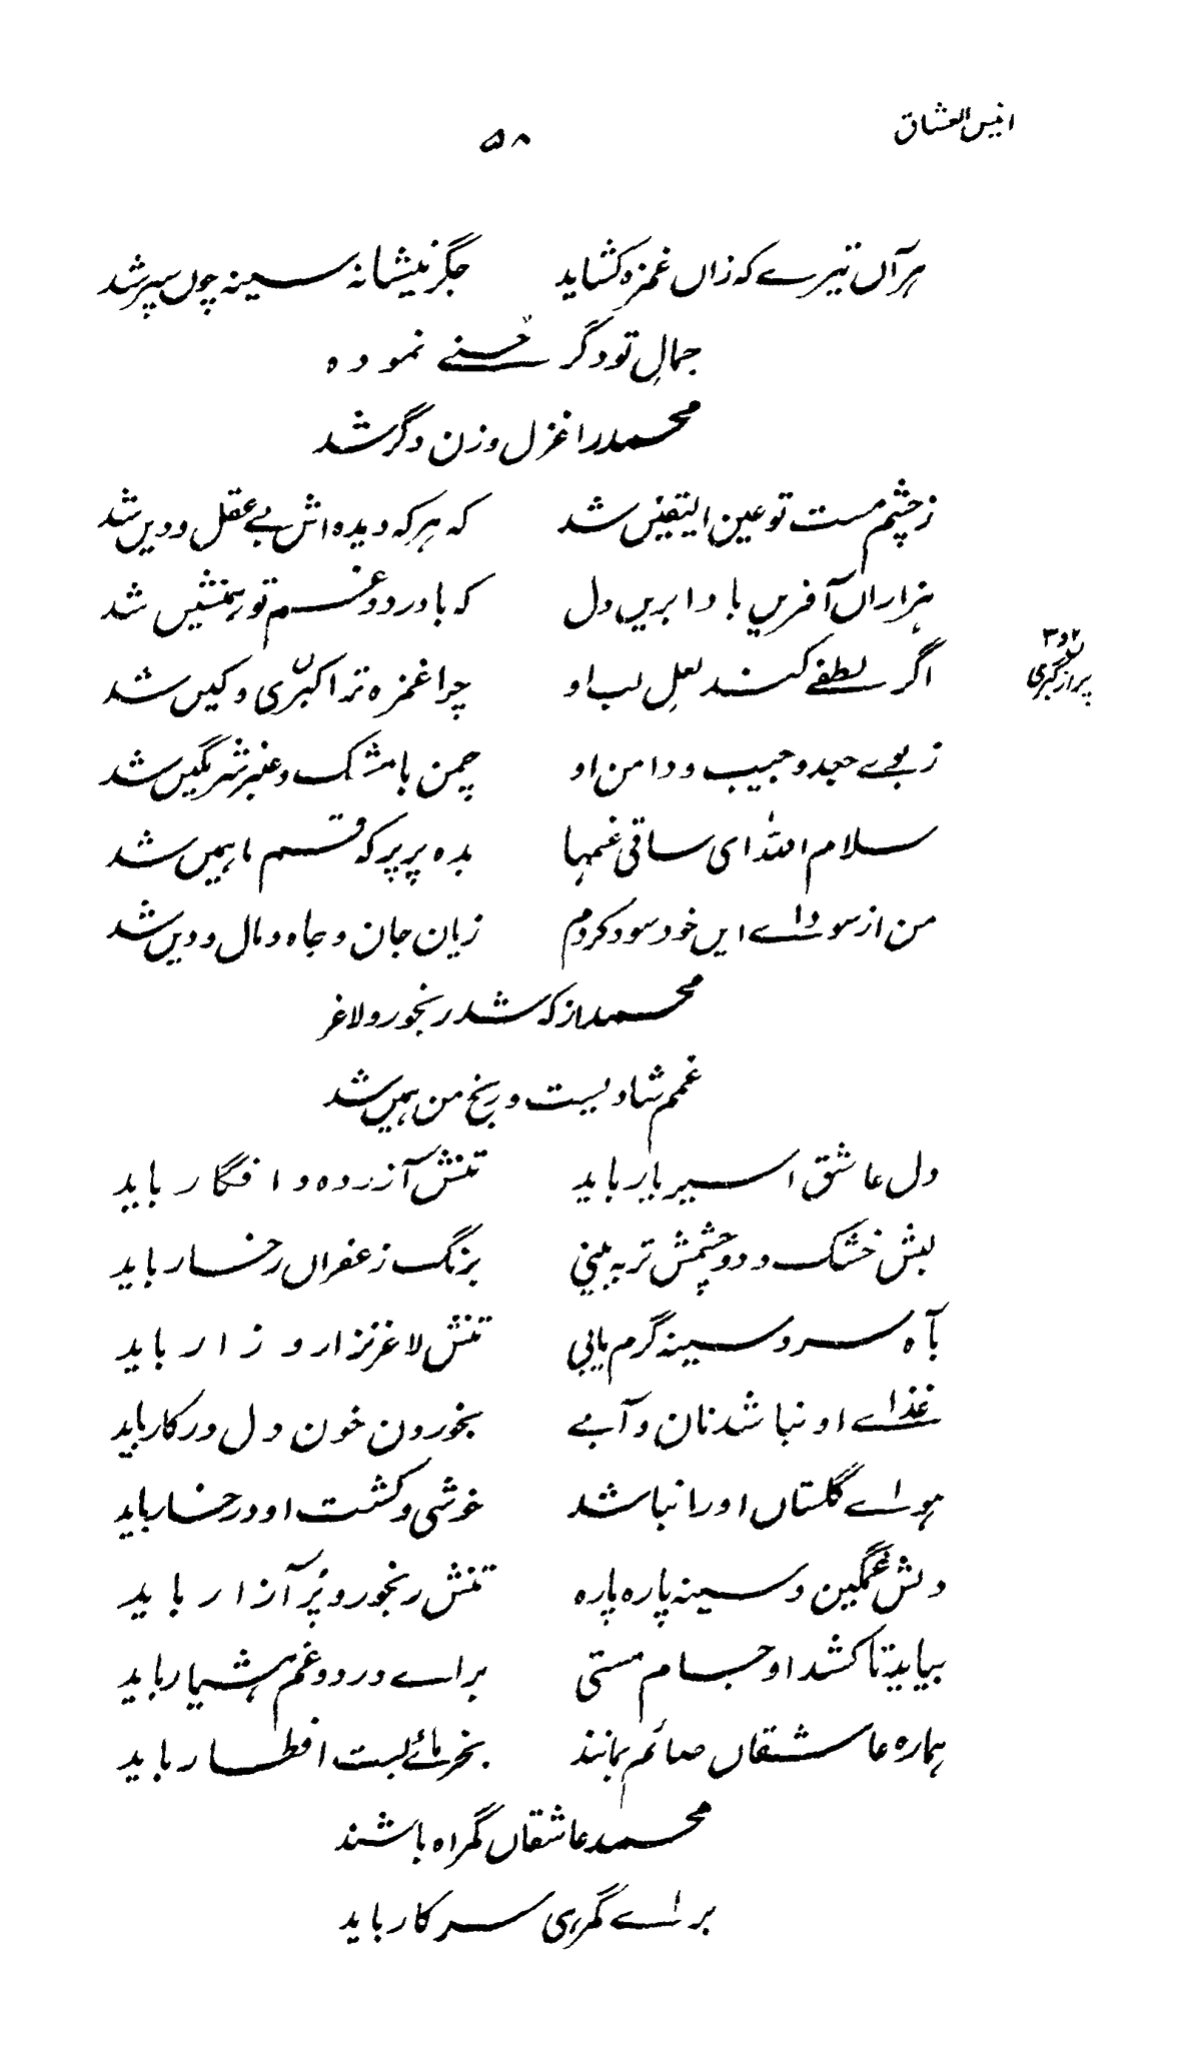 انیس العشاق
۵۸
ہر آں تیرے کہ زاں غمزہ کشاید جگر نیشانہ سینہ چوں سپر شد
جمالِ تو دگر حُسنے نمودہ
محمد را غزل وزن دگر شد
ز چشم مست تو عین الیقیں شد کہ ہر کہ دیدہ اش بے عقل و دیں شد
ہزاراں آفریں بادا بریں دل کہ با درد و غم تو ہمنشیں شد
اگر لطفے کند لعلِ لب او چرا غمزہ ترا کبری و کیں شد
۲ و ۳
پر از کبری
ز بوے جعد و جیب و دامن او چمن با مشک و عنبر شرمگیں شد
سلام اللہ ای ساقی غمہا بدہ پر پر کہ قسم ما ہمیں شد
من از سوداے ایں خود سود کردم زیان جان و جاہ و مال و دیں شد
محمد از کہ شد رنجور و لاغر
غمم شادیست و رنج من ہمیں شد
دل عاشق اسیر یار باید تنش آزردہ و افگار باید
لبش خشک و دو چشمش تر بہ بینی برنگ زعفراں رخسار باید
بآہ سرد سینہ گرم یابی تنش لاغر نزار و زار باید
غذاے او نباشد نان و آبے بخوردن خون دل در کار باید
ہواے گلستاں او را نباشد خوشی و کشت او در خسار باید
دلش غمگین و سینہ پارہ پارہ تنش رنجور و پُر آزار باید
بیاید تا کشد او جام مستی براے درد و غم ہشیار باید
ہمارہ عاشقاں صائم بمانند بخرمائے لبت افطار باید
محمد عاشقاں گمراہ باشند
براے گمرہی سرکار باید